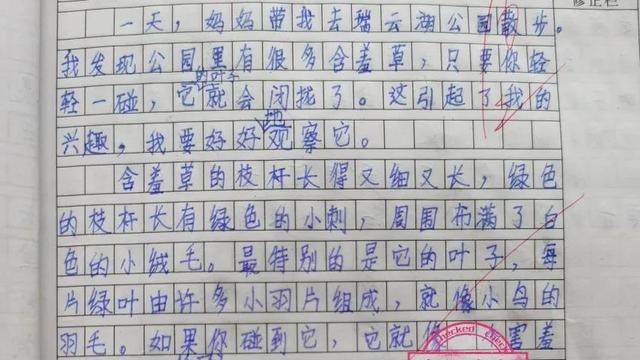 修正栏
一天，妈妈带我去瑞云湖公园散步。
我发现公园里有很多含羞草，只要你轻
的叶子
轻一碰，它就会闭拢了。这引起了我的
地
兴趣，我要好好观察它。
含羞草的枝杆长得又细又长，绿色
的枝杆长有绿色的小刺，周围布满了白
色的小绒毛。最特别的是它的叶子，每
片绿叶由许多小羽片组成，就像小鸟的
Checked
羽毛。如果你碰到它，它就 害羞